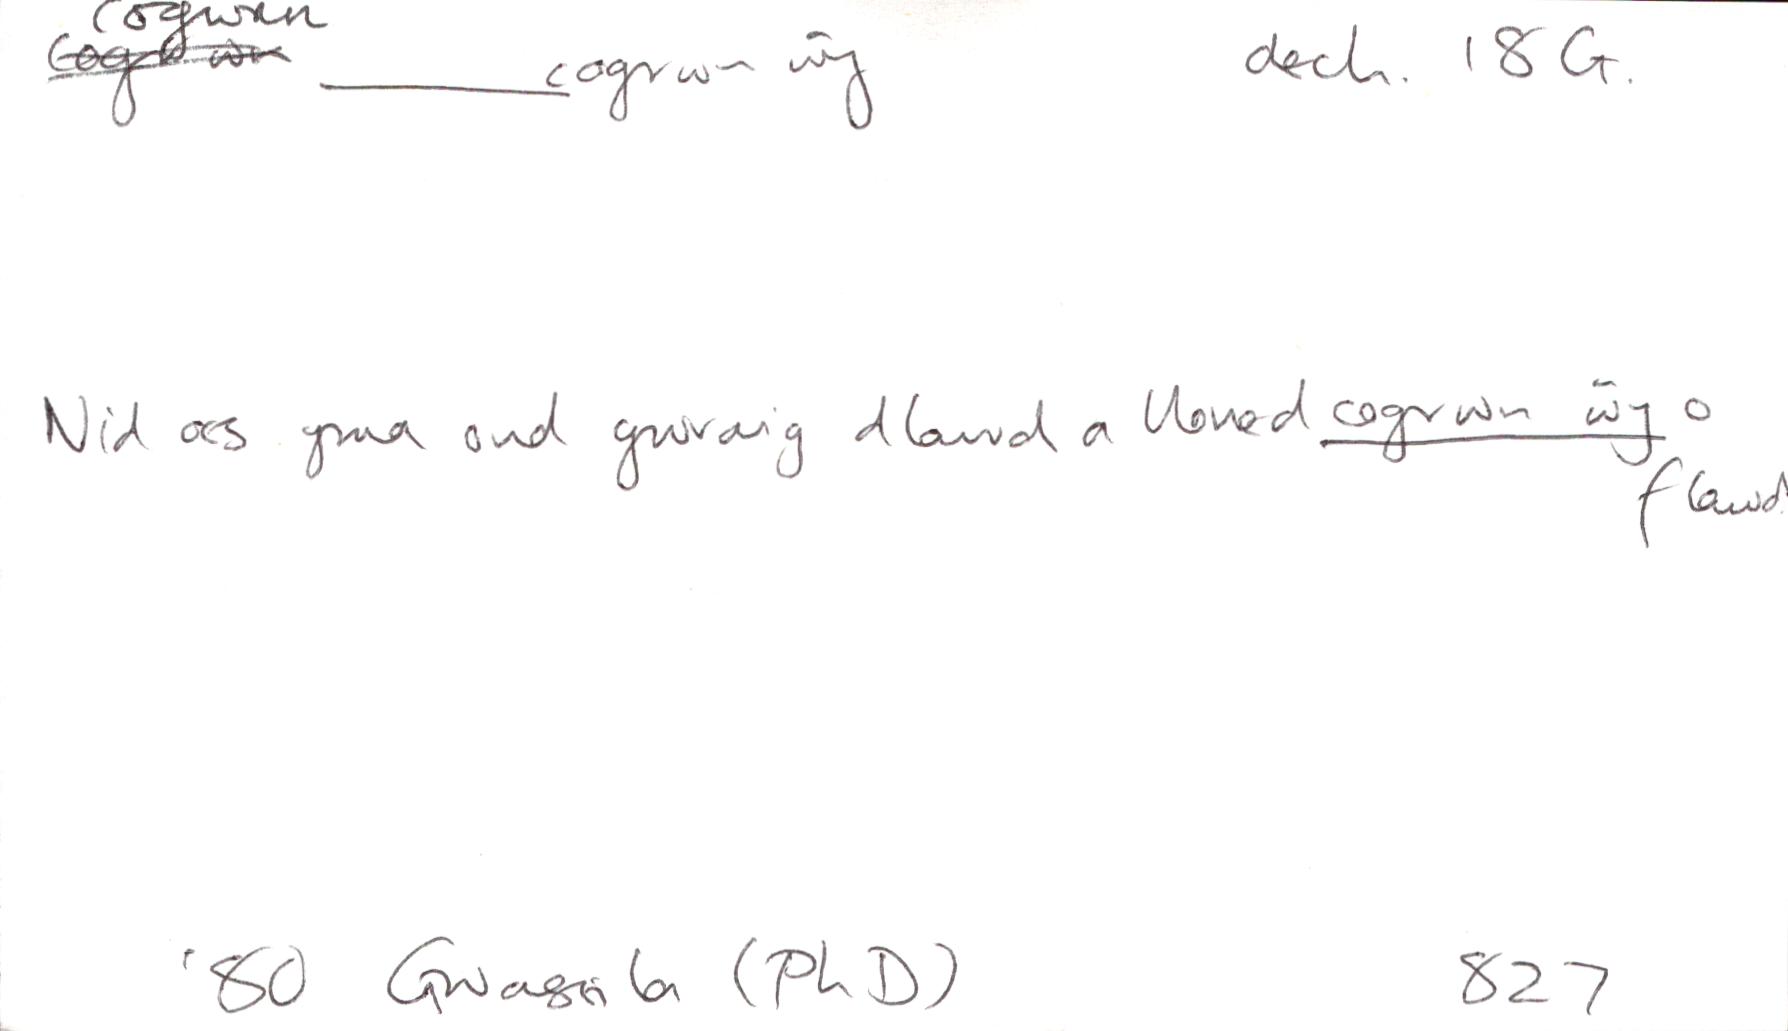 cogwrn
~~cogwrn~~ cogrwn ŵy dech. 18 G.
Nid oes yma ond gwraig dlawd a lloned cogrwn ŵy o
flawd.
'80 (PhD) 827